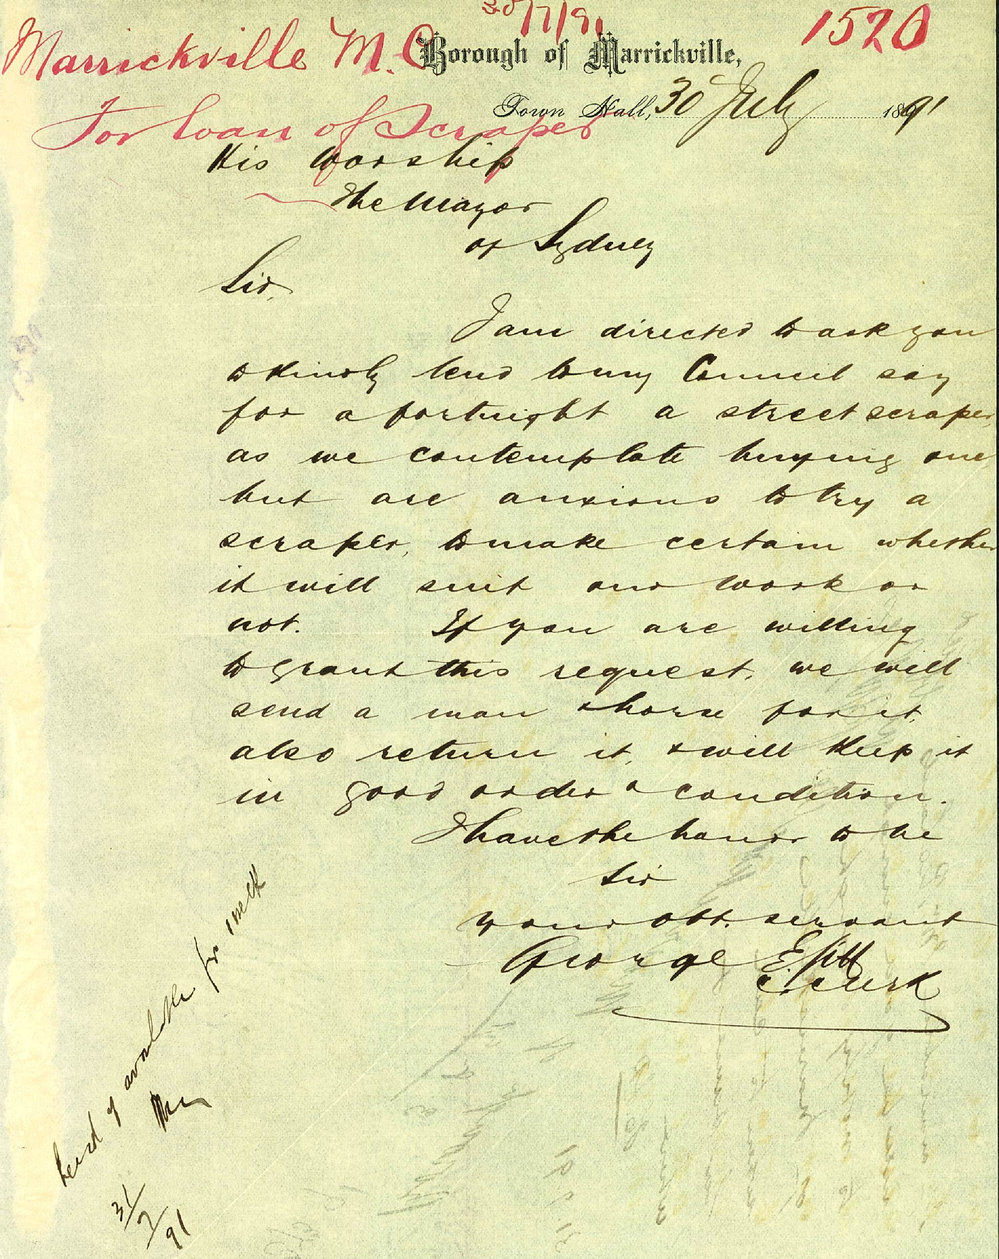 30/7/91
1520
Marrickville M.C
Borough of Marrickville,
For loan of Scraper
Town Hall, 30 July 1891
His Worship
The Mayor
of Sydney
Sir,
I am directed to ask you
to kindly lend to my Council say
for a fortnight a street scraper,
as we contemplate buying one,
but are anxious to try a
scraper, to make certain whether
it will suit our work or
not. If you are willing
to grant this request, we will
send a man & horse for it,
also return it, & will keep it
in good order & condition.
I have the honor to be
Sir
your obt. servant
George
C. Clerk
Lend if available for 1 week
31/7/91